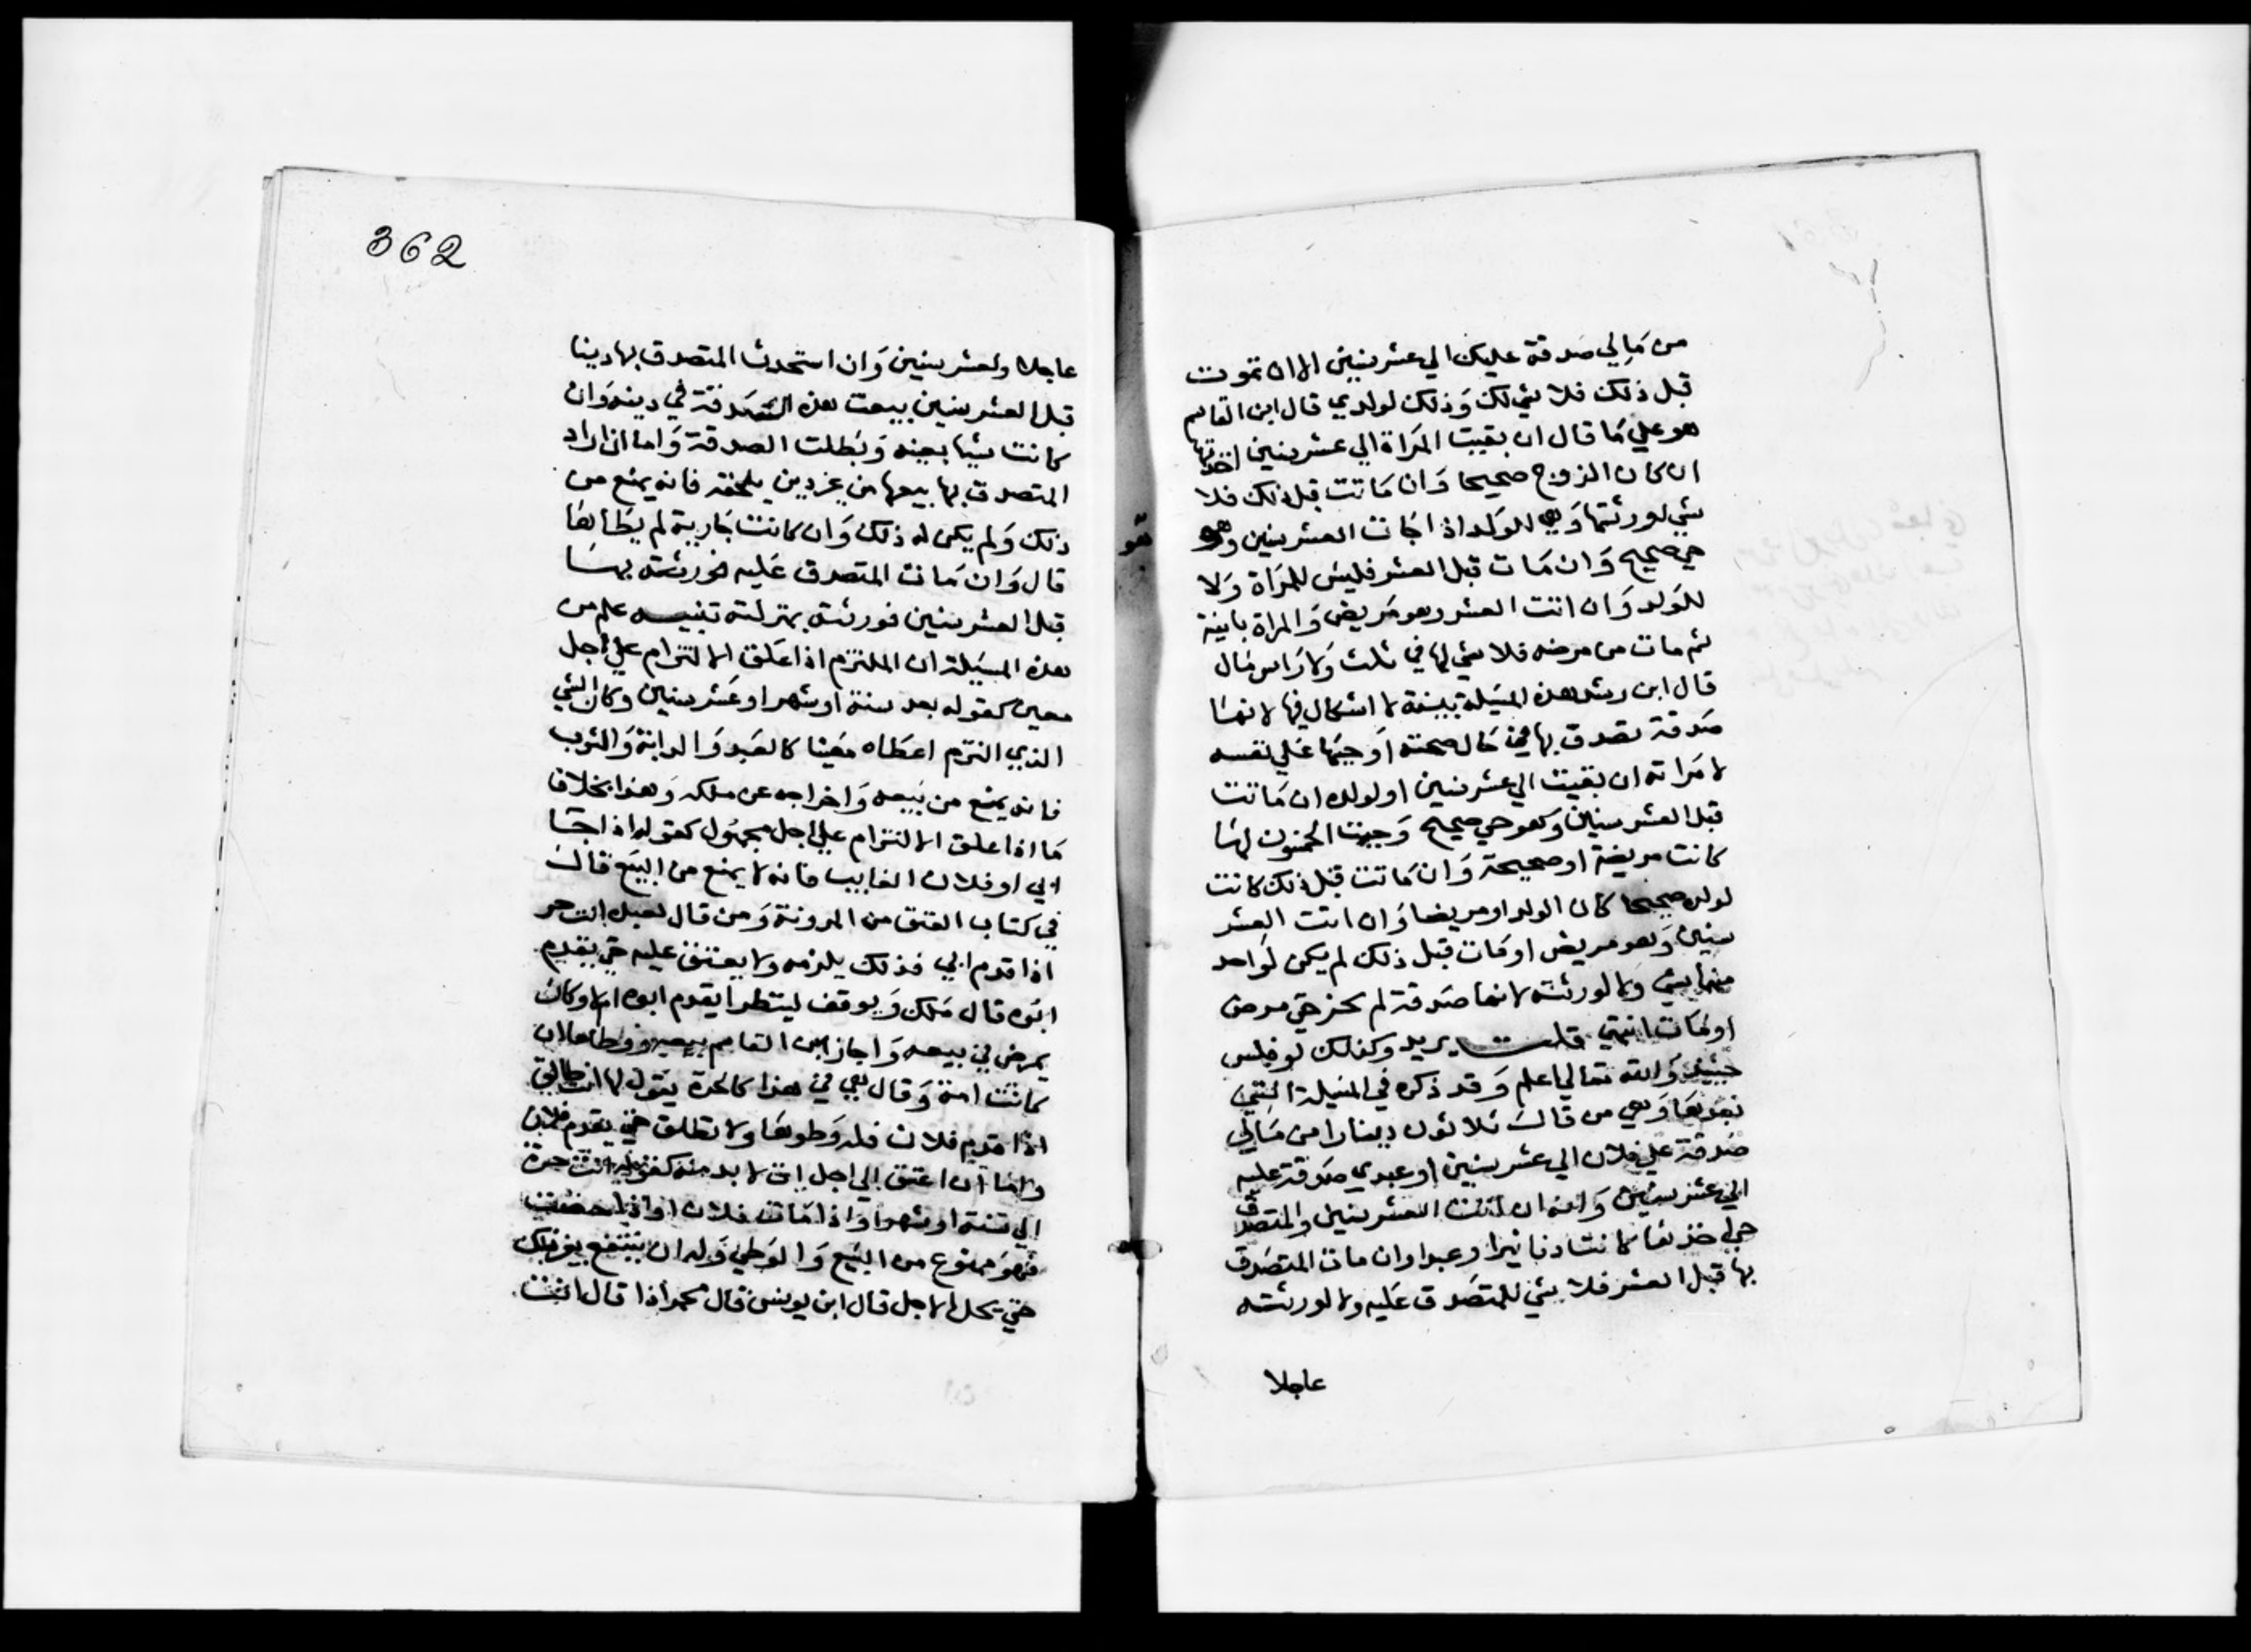 من مالي صدقة عليك الي عشر سنين الا ان تموت
قبل ذلك فلا شي لك وذلك لولدي قال ابن القاسم
هو علي ما قال ان بقيت المراة الي عشر سنين اخذتها
ان كان الزوج صحيحا وان ماتت قبل ذلك فلا
شي لورثتها وهي للولد اذا جات العشر سنين وهو
حي صحيح وان مات قبل العشر فليس للمراة ولا
للولد وان اتت العشر وهو مريض والمراة باينة
ثم مات من مرضه فلا شي لها في ثلث ولا راس مال
قال ابن رشد هذه المسيلة بينة لا اشكال فيها لانها
صدقة تصدق بها في حال صحته اوجبها علي نفسه
لامراته ان بقيت الي عشر سنين او لولده ان ماتت
قبل العشر سنين وهو حي صحيح وجبت لها
كانت مريضة او صحيحة وان ماتت قبل ذلك كانت
لولده صحيحا كان الولد او مريضا وان اتت العشر
سنين وهو مريض او مات قبل ذلك لم يكن لواحد
منهما شي ولا لورثته لانها صدقة لم تحز حتي مرض
او مات انتهي قلت يريد وكذلك لو فلس
حينيذ والله تعالي اعلم وقد ذكره في المسيلة التي
بعدها وهي من قال ثلاثون دينارا من مالي
صدقة علي فلان الي عشر سنين او عبدي صدقة عليه
الي عشر سنين وانه ان اتت العشر سنين والمتصدق
حي اخذها كانت دنانيرا وعبدا وان مات المتصدق
بها قبل العشر فلا شي للمتصدق عليه ولا لورثته
عاجلا
362
عاجلا ولعشر سنين وان استحدث المتصدق بها دينا
قبل العشر سنين بيعت هذه الصدقة في دينه وان
كانت شيا بعينه وبطلت الصدقة واما ان اراد
المتصدق بها بيعها من غير دين يلحقه فانه يمنع من
ذلك ولم يكن له ذلك وان كانت جارية لم يطاها
قال وان مات المتصدق عليه فورثته بها
قبل العشر سنين فورثته بمنزلته تنبيه علم من
هذه المسيلة ان الملتزم اذا علق الالتزام علي اجل
معين كقوله بعد سنة او شهر او عشر سنين وكان الشي
الذي التزم اعطاه معينا كالعبد والدابة والثوب
فانه يمنع من بيعه واخراجه عن ملكه وهذا بخلاف
ما اذا علق الالتزام علي اجل مجهول كقوله اذا جا
ابي او فلان الغايب فانه لا يمنع من البيع قال
في كتاب العتق من المدونة ومن قال لعبده انت حر
اذا قدم ابي فذلك يلزمه ولا يعتق عليه حتي يقدم
ابوه قال ملك ويوقف لينظر ايقدم ابوه ام لا وكان
يمرض في بيعه واجاز ابن القاسم بيعه ووطاها ان
كانت امة وقال هي في هذا كالحرة يقول لها انت طالق
اذا قدم فلان فله وطوها ولا تطلق حتي يقدم فلان
واما ان اعتق الي اجل ات لا بد منه كقوله انت حرة
الي سنة او شهر او اذا مات فلان او اذا حضت
فهو ممنوع من البيع والوطي وله ان ينتفع بغير ذلك
حتي يحل الاجل قال ابن يونس قال محمد اذا قال انت